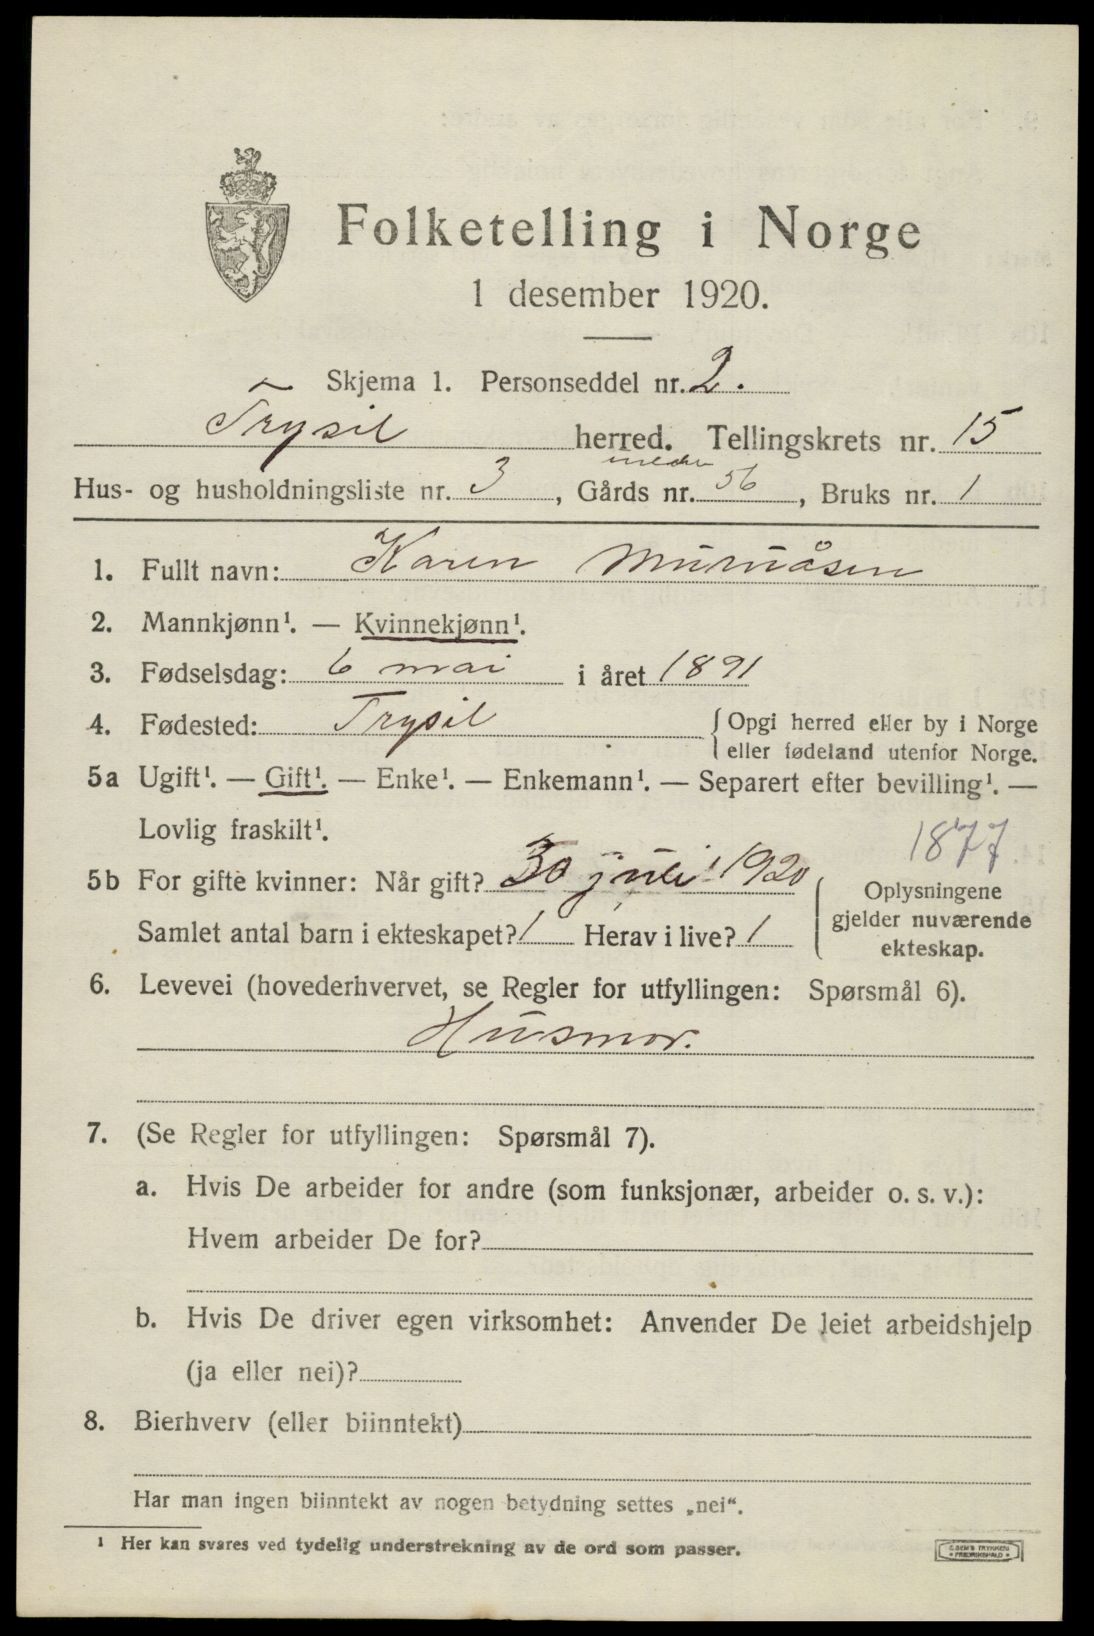 Folketelling i Norge
1 desember 1920.
Skjema 1. Personseddel nr. 2.
Trysil herred. Tellingskrets nr. 15
Hus- og husholdningsliste nr. 3, Gårds nr. 56, Bruks nr. 1
1. Fullt navn: Karen
2. Mannkjønn¹. — Kvinnekjønn¹.
3. Fødselsdag: 6 mai i året 1891
4. Fødested: Trysil { Opgi herred eller by i Norge
eller fødeland utenfor Norge.
5a Ugift¹. — Gift¹. — Enke¹. — Enkemann¹. — Separert efter bevilling¹. —
Lovlig fraskilt¹.
1877
5b For gifte kvinner: Når gift? 30 juli 1920
Samlet antal barn i ekteskapet? 1 Herav i live? 1
Oplysningene
gjelder nuværende
ekteskap.
6. Levevei (hovederhvervet, se Regler for utfyllingen: Spørsmål 6).
Husmor.
7. (Se Regler for utfyllingen: Spørsmål 7).
a. Hvis De arbeider for andre (som funksjonær, arbeider o. s. v.):
Hvem arbeider De for?
b. Hvis De driver egen virksomhet: Anvender De leiet arbeidshjelp
(ja eller nei)?
8. Bierhverv (eller biinntekt)
Har man ingen biinntekt av nogen betydning settes „nei“.
¹ Her kan svares ved tydelig understrekning av de ord som passer.